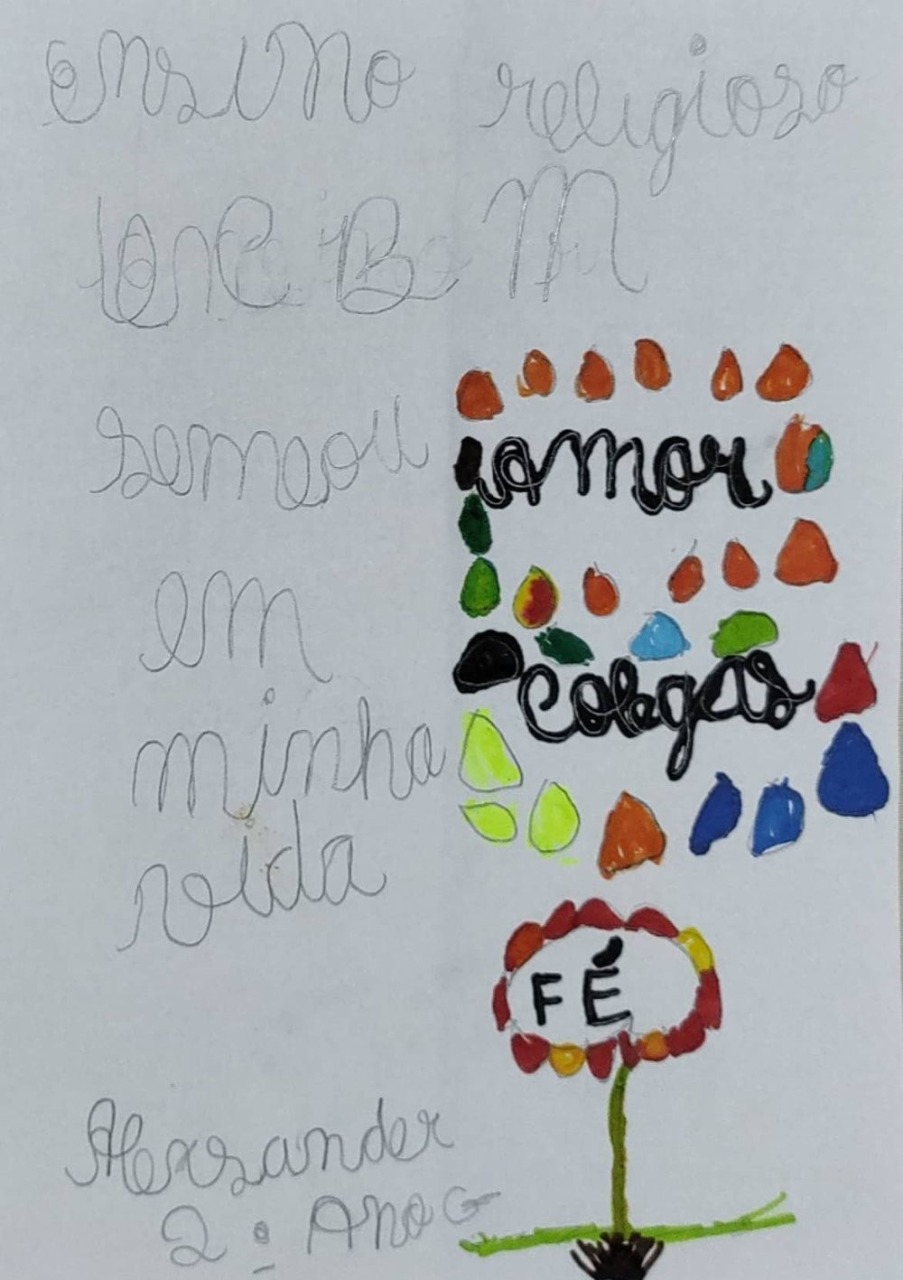 ensino religioso
semeou amor
em
colegas
minha
vida
FÉ
Alexsander
2º Ano C